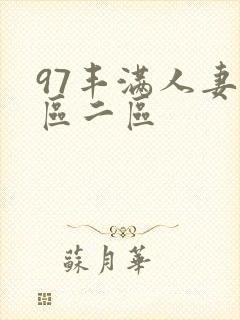 97丰滿人妻
區二區
蘇月華